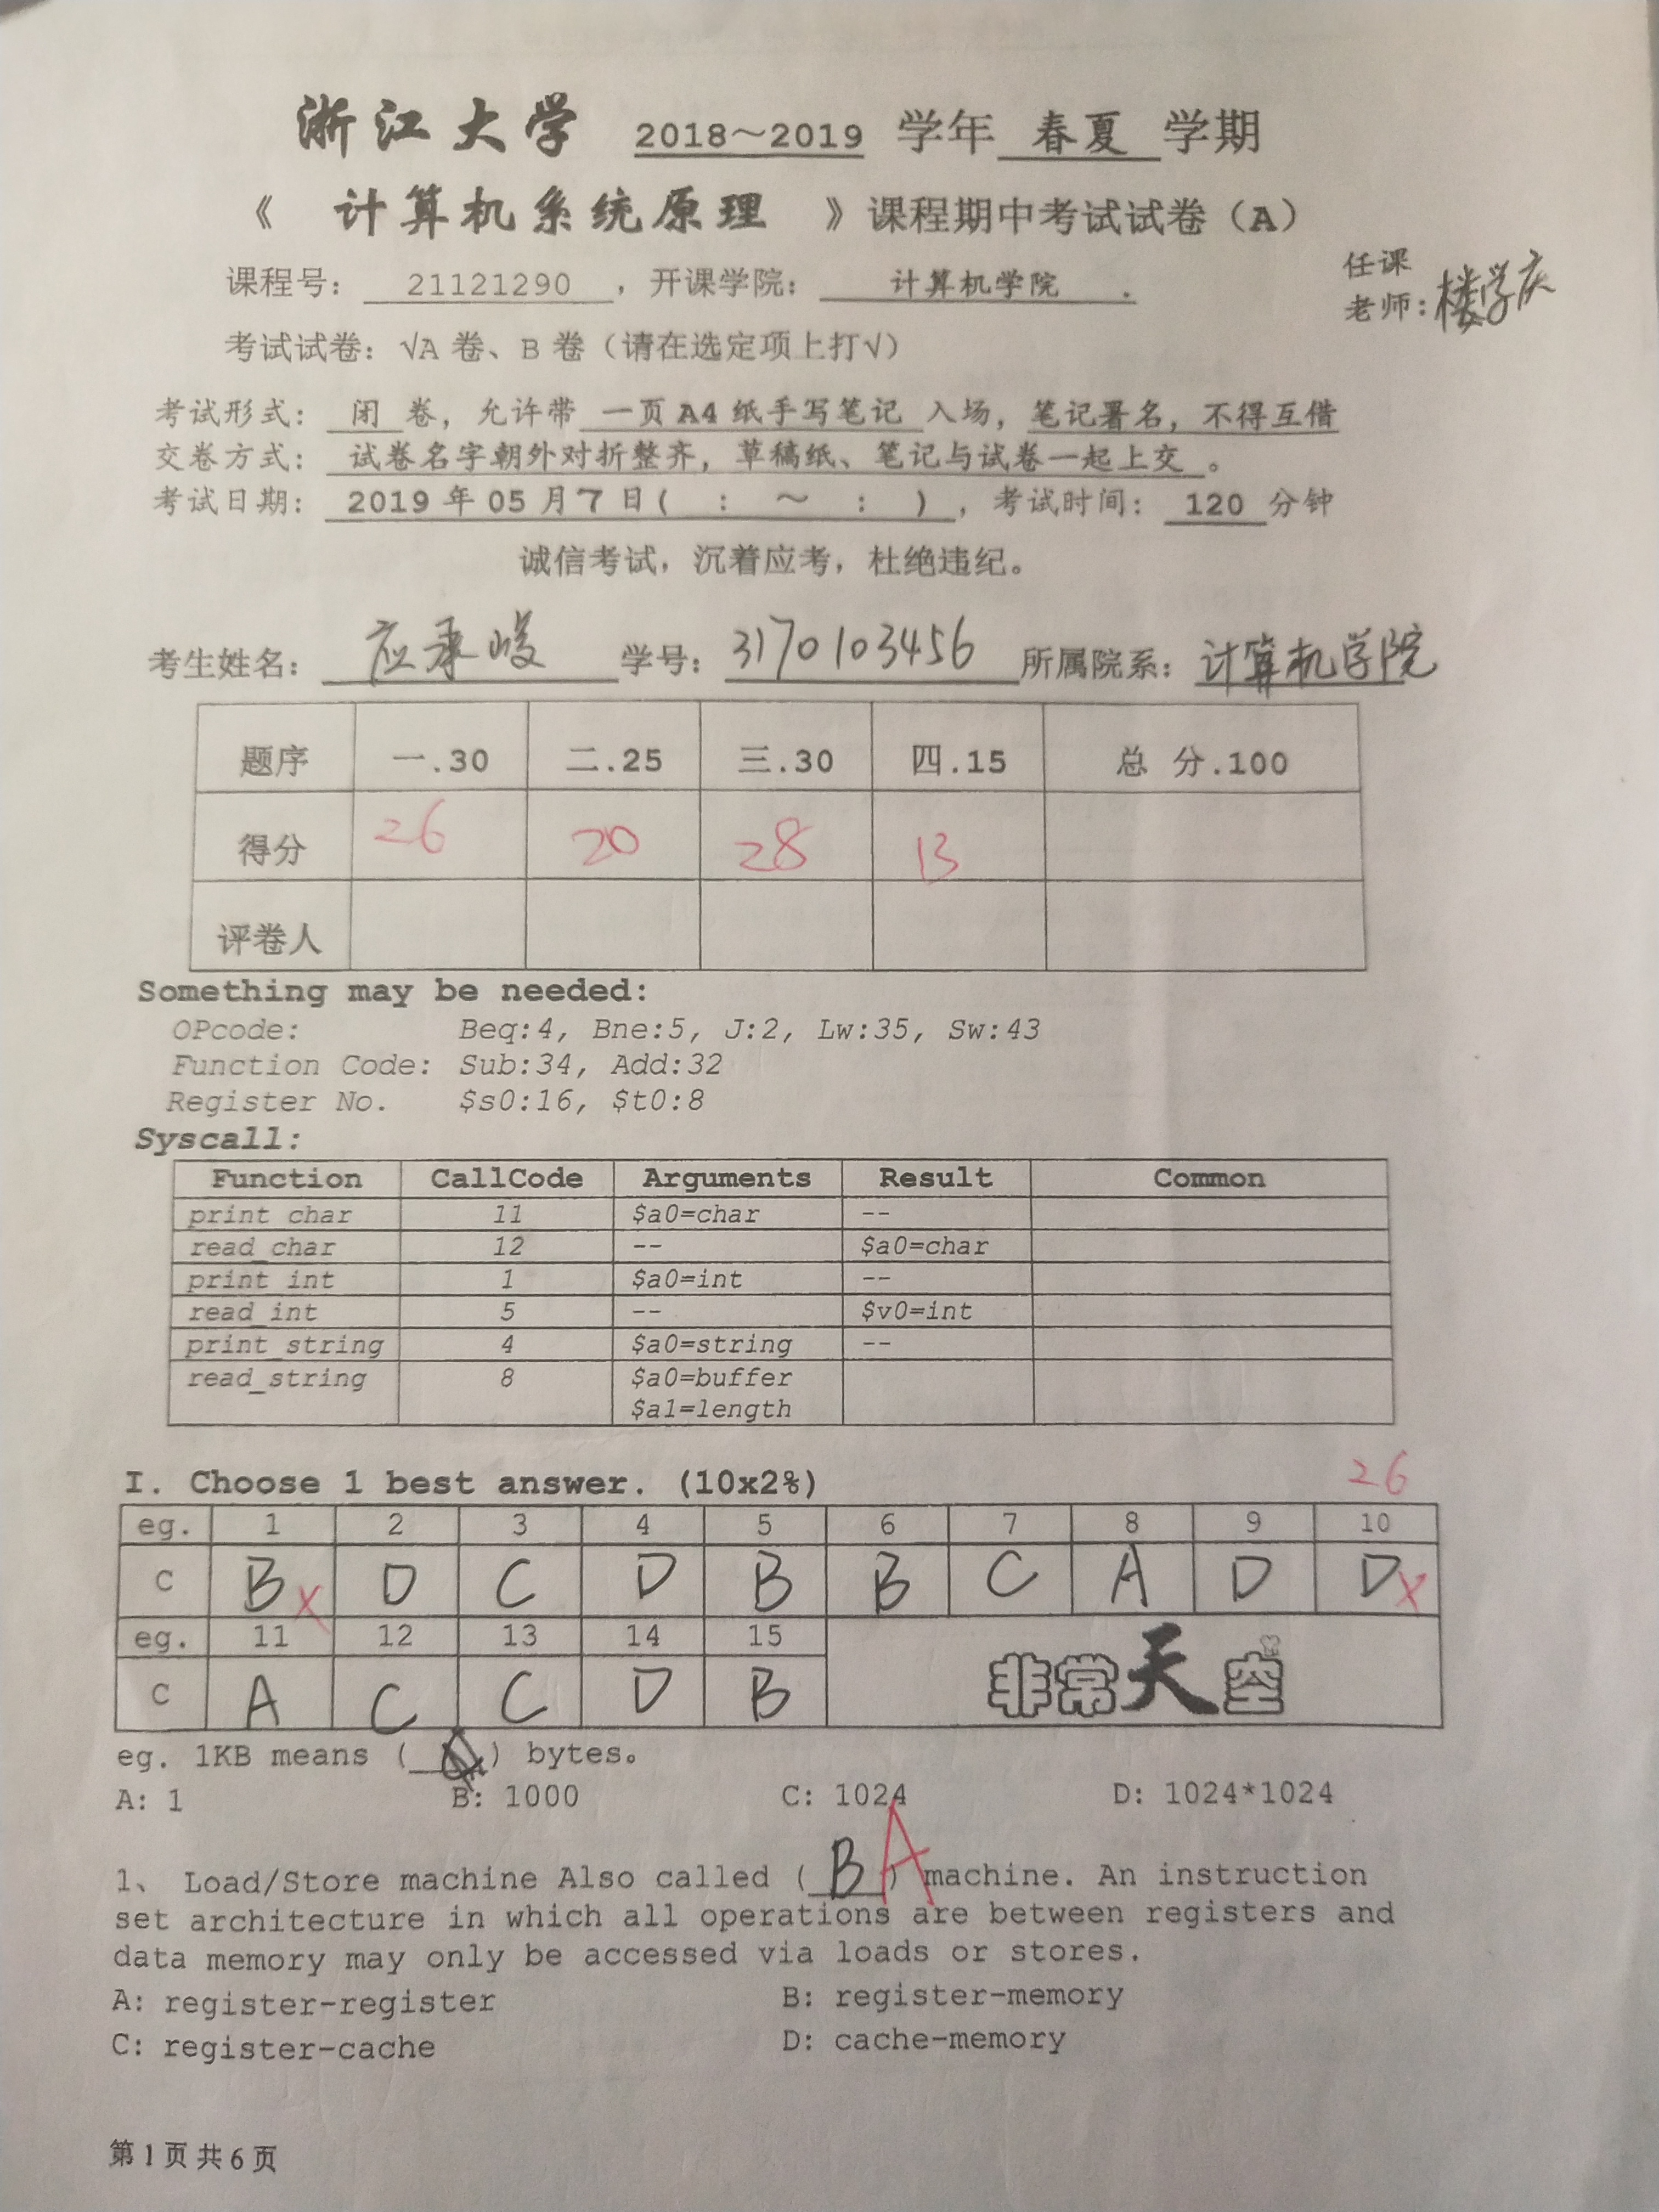 浙江大学 2018～2019 学年 春夏 学期
《 计算机系统原理 》课程期中考试试卷（A）
课程号： 21121290 ，开课学院： 计算机学院 .
任课
老师：楼学庆
考试试卷：√A 卷、B 卷（请在选定项上打√）
考试形式： 闭 卷，允许带 一页 A4 纸手写笔记 入场，笔记署名，不得互借
交卷方式： 试卷名字朝外对折整齐，草稿纸、笔记与试卷一起上交 。
考试日期： 2019 年 05 月 7 日( : ～ : ) ，考试时间： 120 分钟
诚信考试，沉着应考，杜绝违纪。
考生姓名： 应承峻 学号： 3170103456 所属院系： 计算机学院
题序 一.30 二.25 三.30 四.15 总 分.100
得分 26 20 28 13
评卷人
Something may be needed:
OPcode: Beq:4, Bne:5, J:2, Lw:35, Sw:43
Function Code: Sub:34, Add:32
Register No. $s0:16, $t0:8
Syscall:
Function CallCode Arguments Result Common
print char 11 $a0=char --
read_char 12 -- $a0=char
print int 1 $a0=int --
read_int 5 -- $v0=int
print_string 4 $a0=string --
read_string 8 $a0=buffer
$a1=length
26
I. Choose 1 best answer. (10x2%)
eg. 1 2 3 4 5 6 7 8 9 10
C B × D C D B B C A D D ×
eg. 11 12 13 14 15
C A C C D B 非常天空
eg. 1KB means (____) bytes。
A: 1 B: 1000 C: 1024 D: 1024*1024
1、 Load/Store machine Also called ( B ) A machine. An instruction
set architecture in which all operations are between registers and
data memory may only be accessed via loads or stores.
A: register-register B: register-memory
C: register-cache D: cache-memory
第 1 页 共 6 页